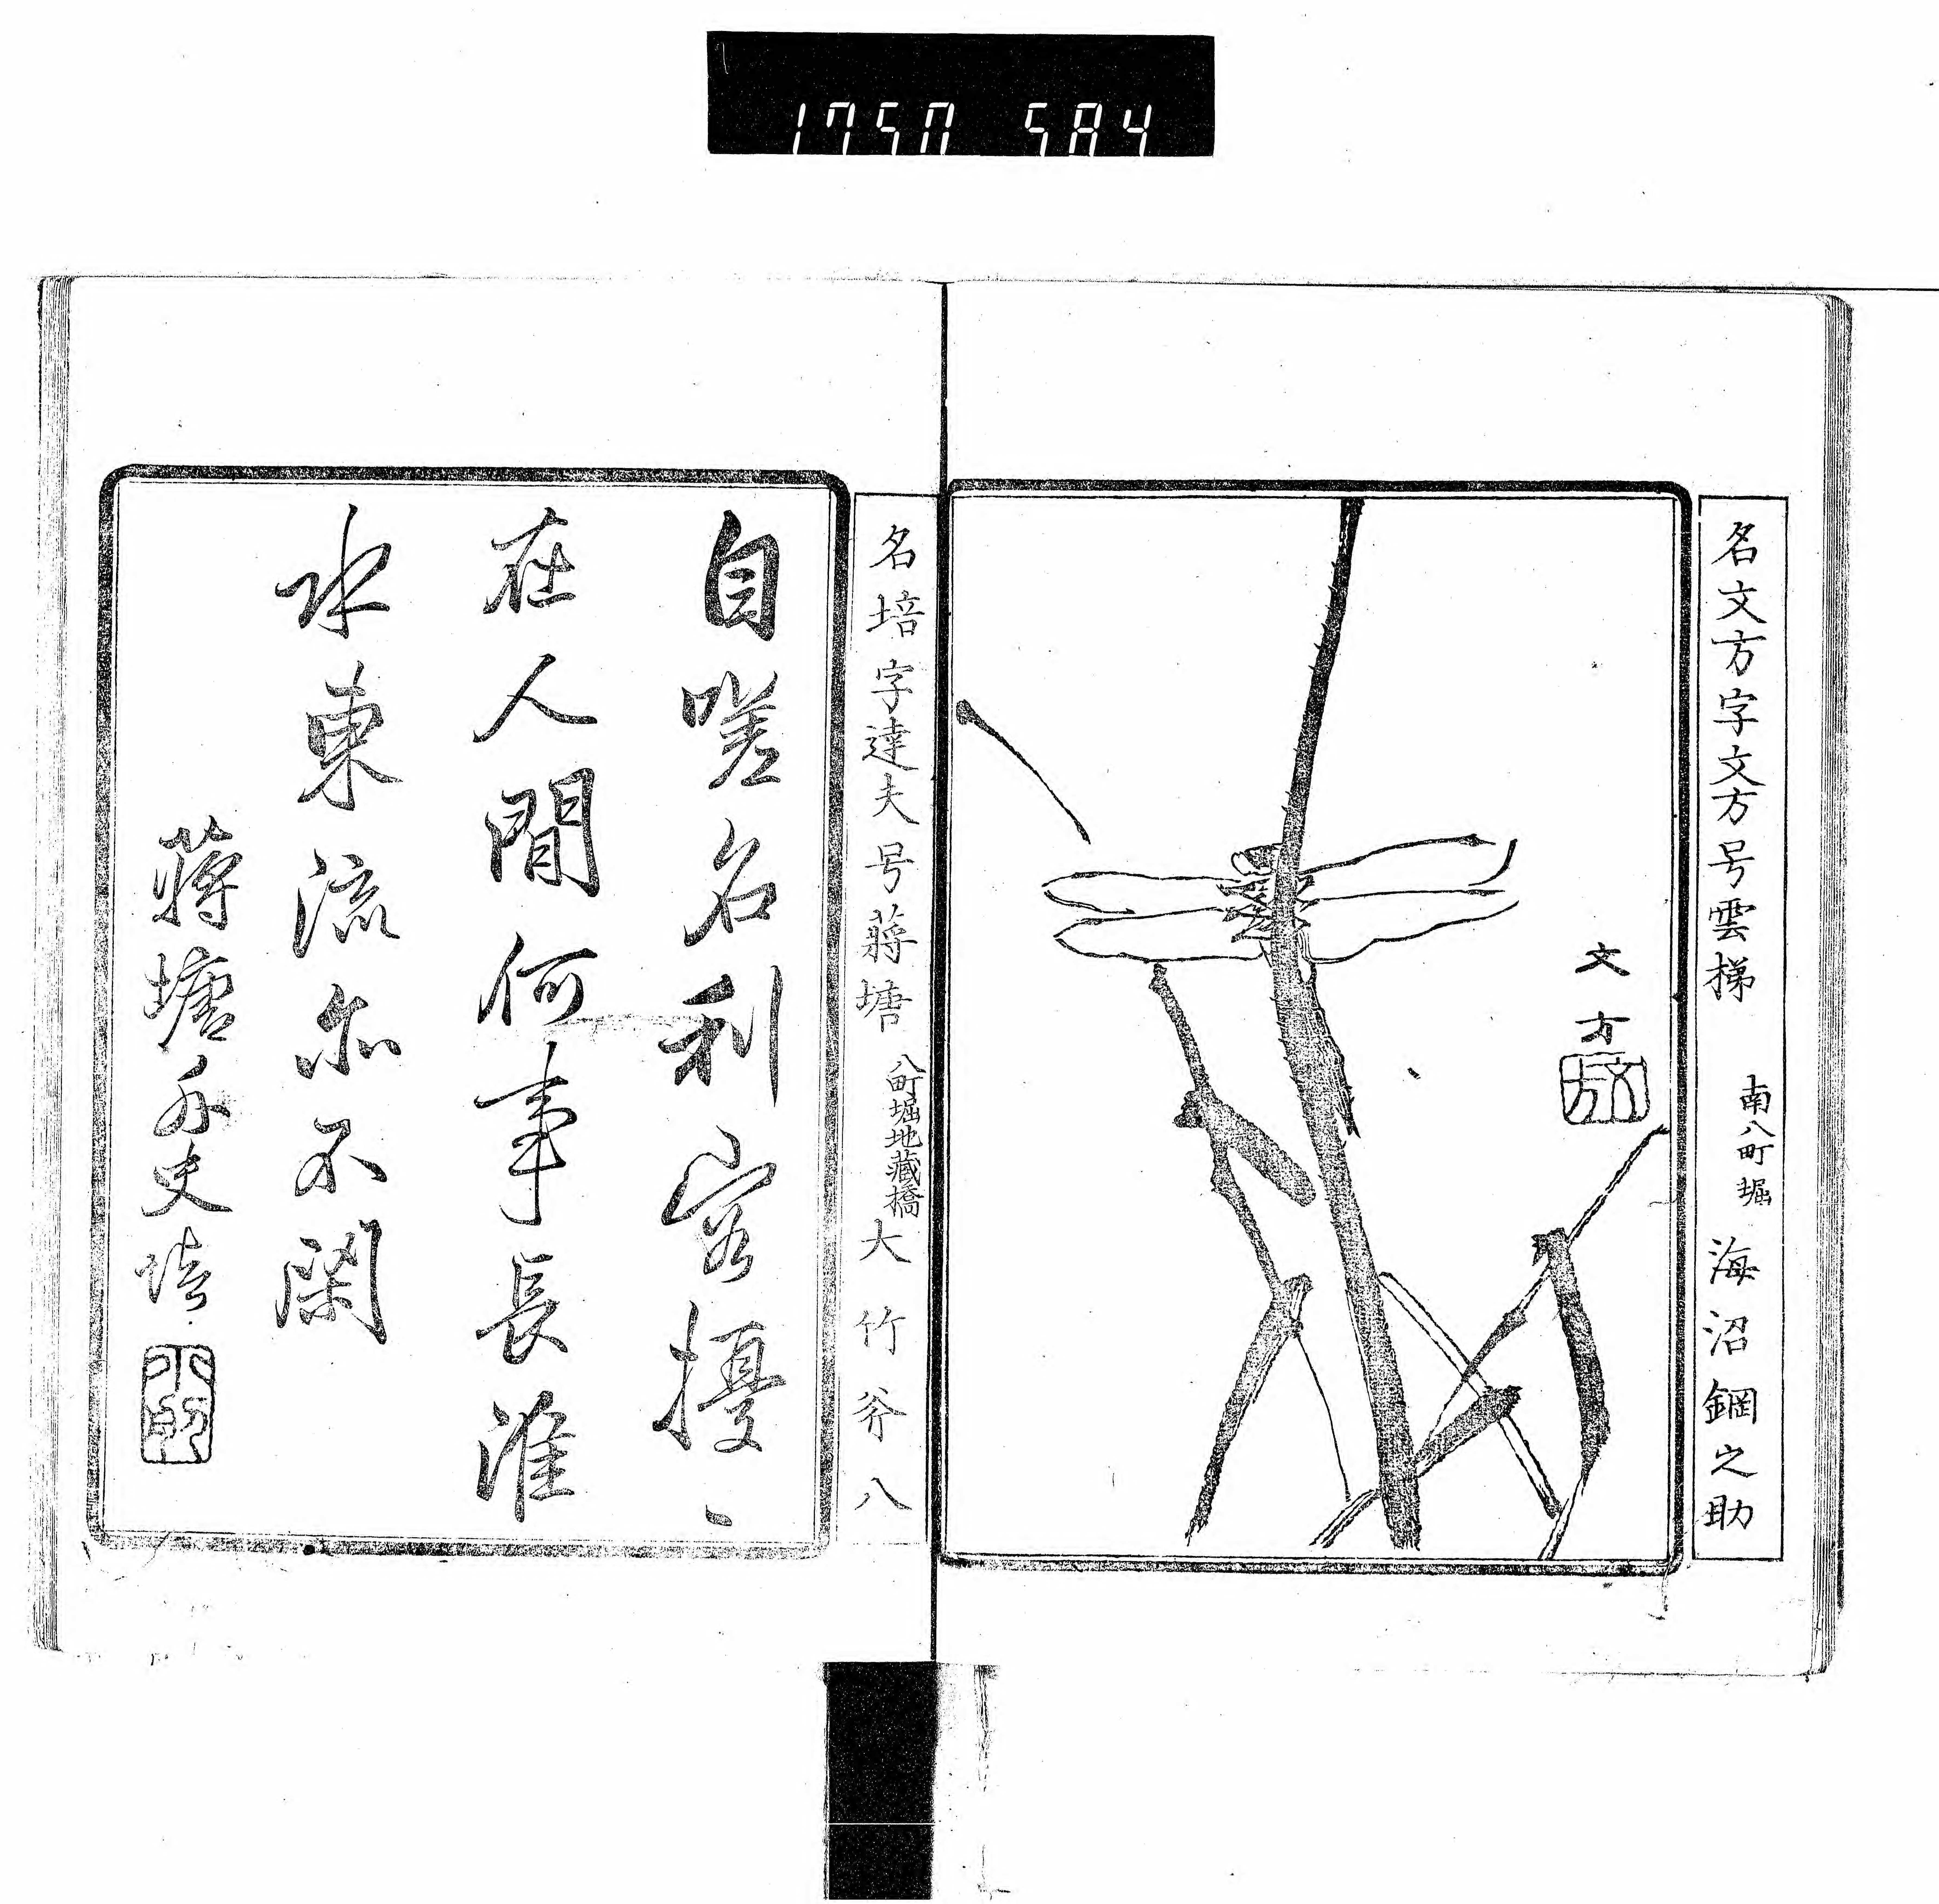 1750 584
名文方字文方号雲梯 南八町堀 海沼鋼之助
文方
文方
名培字達夫号蒋塘 八町堀地蔵橋 大竹斧八
自嗟名利客擾〻
在人間何事長淮
水東流亦不閑
蒋塘外史培